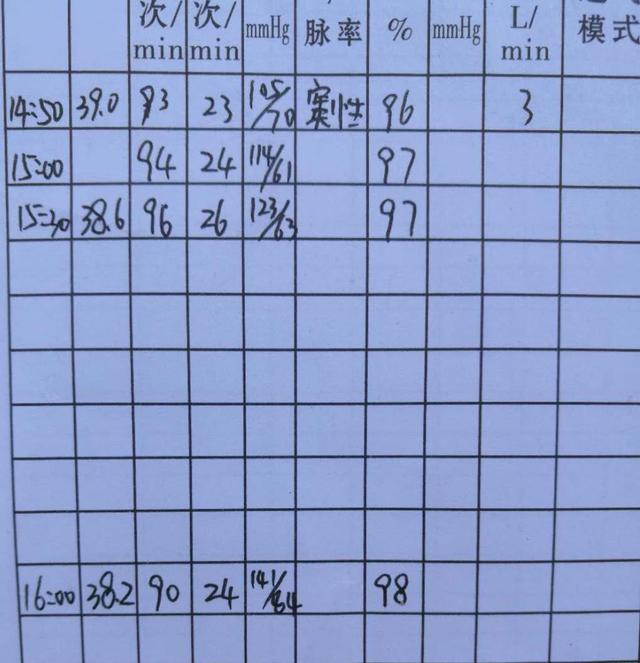 次/ 次/ mmHg 脉率 % mmHg L/ 模式
min min min
14:50 39.0 93 23 105/70 窦性 96 3
15:00 94 24 114/61 97
15:30 38.6 96 26 123/63 97
16:00 38.2 90 24 141/64 98